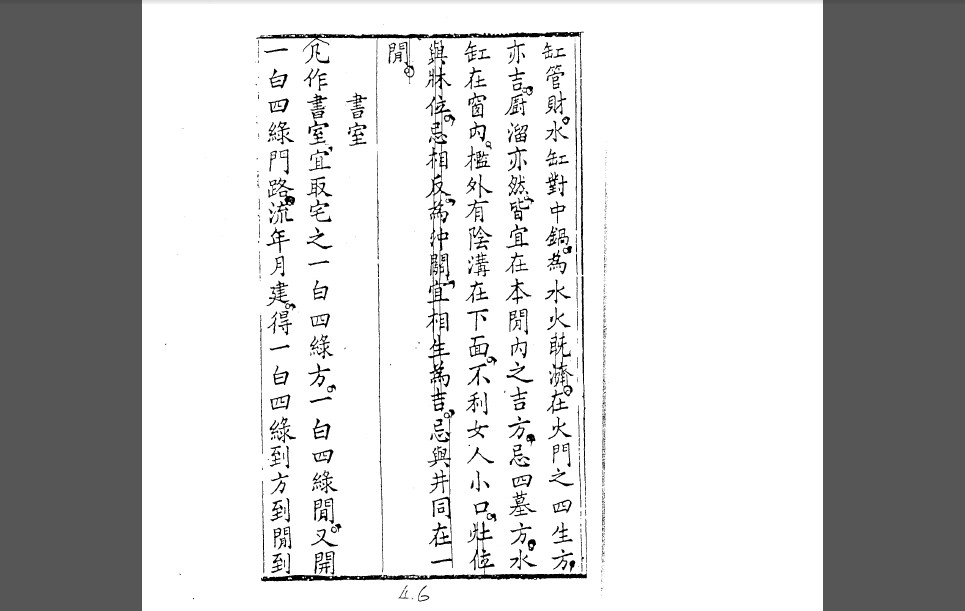 缸管財。水缸對中鍋。為水火既濟。在火門之四生方。
亦吉。厨溜亦然。皆宜在本間內之吉方。忌四墓方。水
缸在窗內。檻外有陰溝在下面。不利女人小口。灶位
與牀位。忌相反。為冲關。宜相生為吉。忌與井同在一
間。
書室
凡作書室。宜取宅之一白四綠方。一白四綠間。又開
一白四綠門路。流年月建。得一白四綠到方到間到
4.6